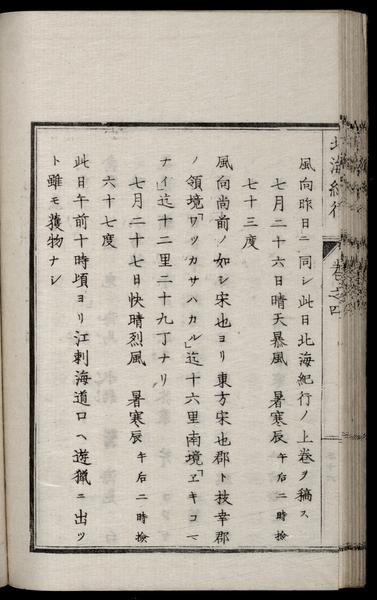 風向昨日ニ同シ此日北海紀行ノ上巻ヲ稿ス
七月二十六日晴天暴風　暑寒辰午后二時撿
七十三度
風向尚前ノ如シ宋也ヨリ東方宋也郡ト技幸郡
ノ領境「ワツカサハカル」迄十六里南境「ヱキコマ
ナイ」迄十二里二十九丁ナリ
七月二十七日快晴烈風　暑寒辰午后二時撿
六十七度
此日午前十時頃ヨリ江刺海道口ヘ遊猟ニ出ツ
ト雖モ獲物ナシ
北海紀行　巻之四